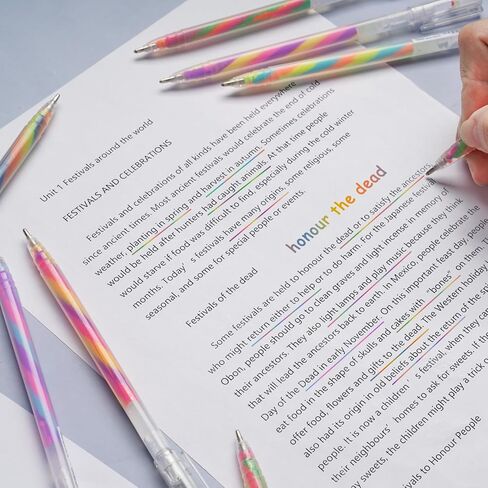 Unit 1 Festivals around the world
FESTIVALS AND CELEBRATIONS
Festivals and celebrations of all kinds have been held everywhere
since ancient times. Most ancient festivals would celebrate the end of cold
weather, planting in spring and harvest in autumn. Sometimes celebrations
would be held after hunters had caught animals. At that time people
would starve if food was difficult to find, especially during the cold winter
months. Today's festivals have many origins, some religious, some
seasonal, and some for special people or events.
honour the dead
Festivals of the dead
Some festivals are held to honour the dead or to satisfy the ancestors,
who might return either to help or to do harm. For the Japanese festival,
Obon, people should go to clean graves and light incense in memory of
their ancestors. They also light lamps and play music because they think
that will lead the ancestors back to earth. In Mexico, people celebrate the
Day of the Dead in early November. On this important feast day, people
eat food in the shape of skulls and cakes with "bones" on them. The
offer food, flowers and gifts to the dead. The Western holiday
also had its origin in old beliefs about the return of the spi
people. It is now a children's festival, when they can
their neighbours' homes to ask for sweets. If the
any sweets, the children might play a trick o
ivals to Honour People